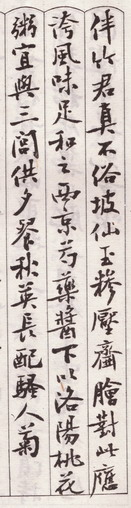 伴竹君真不俗坡仙玉糝壓虀膾對此應
誇風味足和之西京芍藥醬下以洛陽桃花
粥宜與三閭供夕餐秋英長配騷人菊